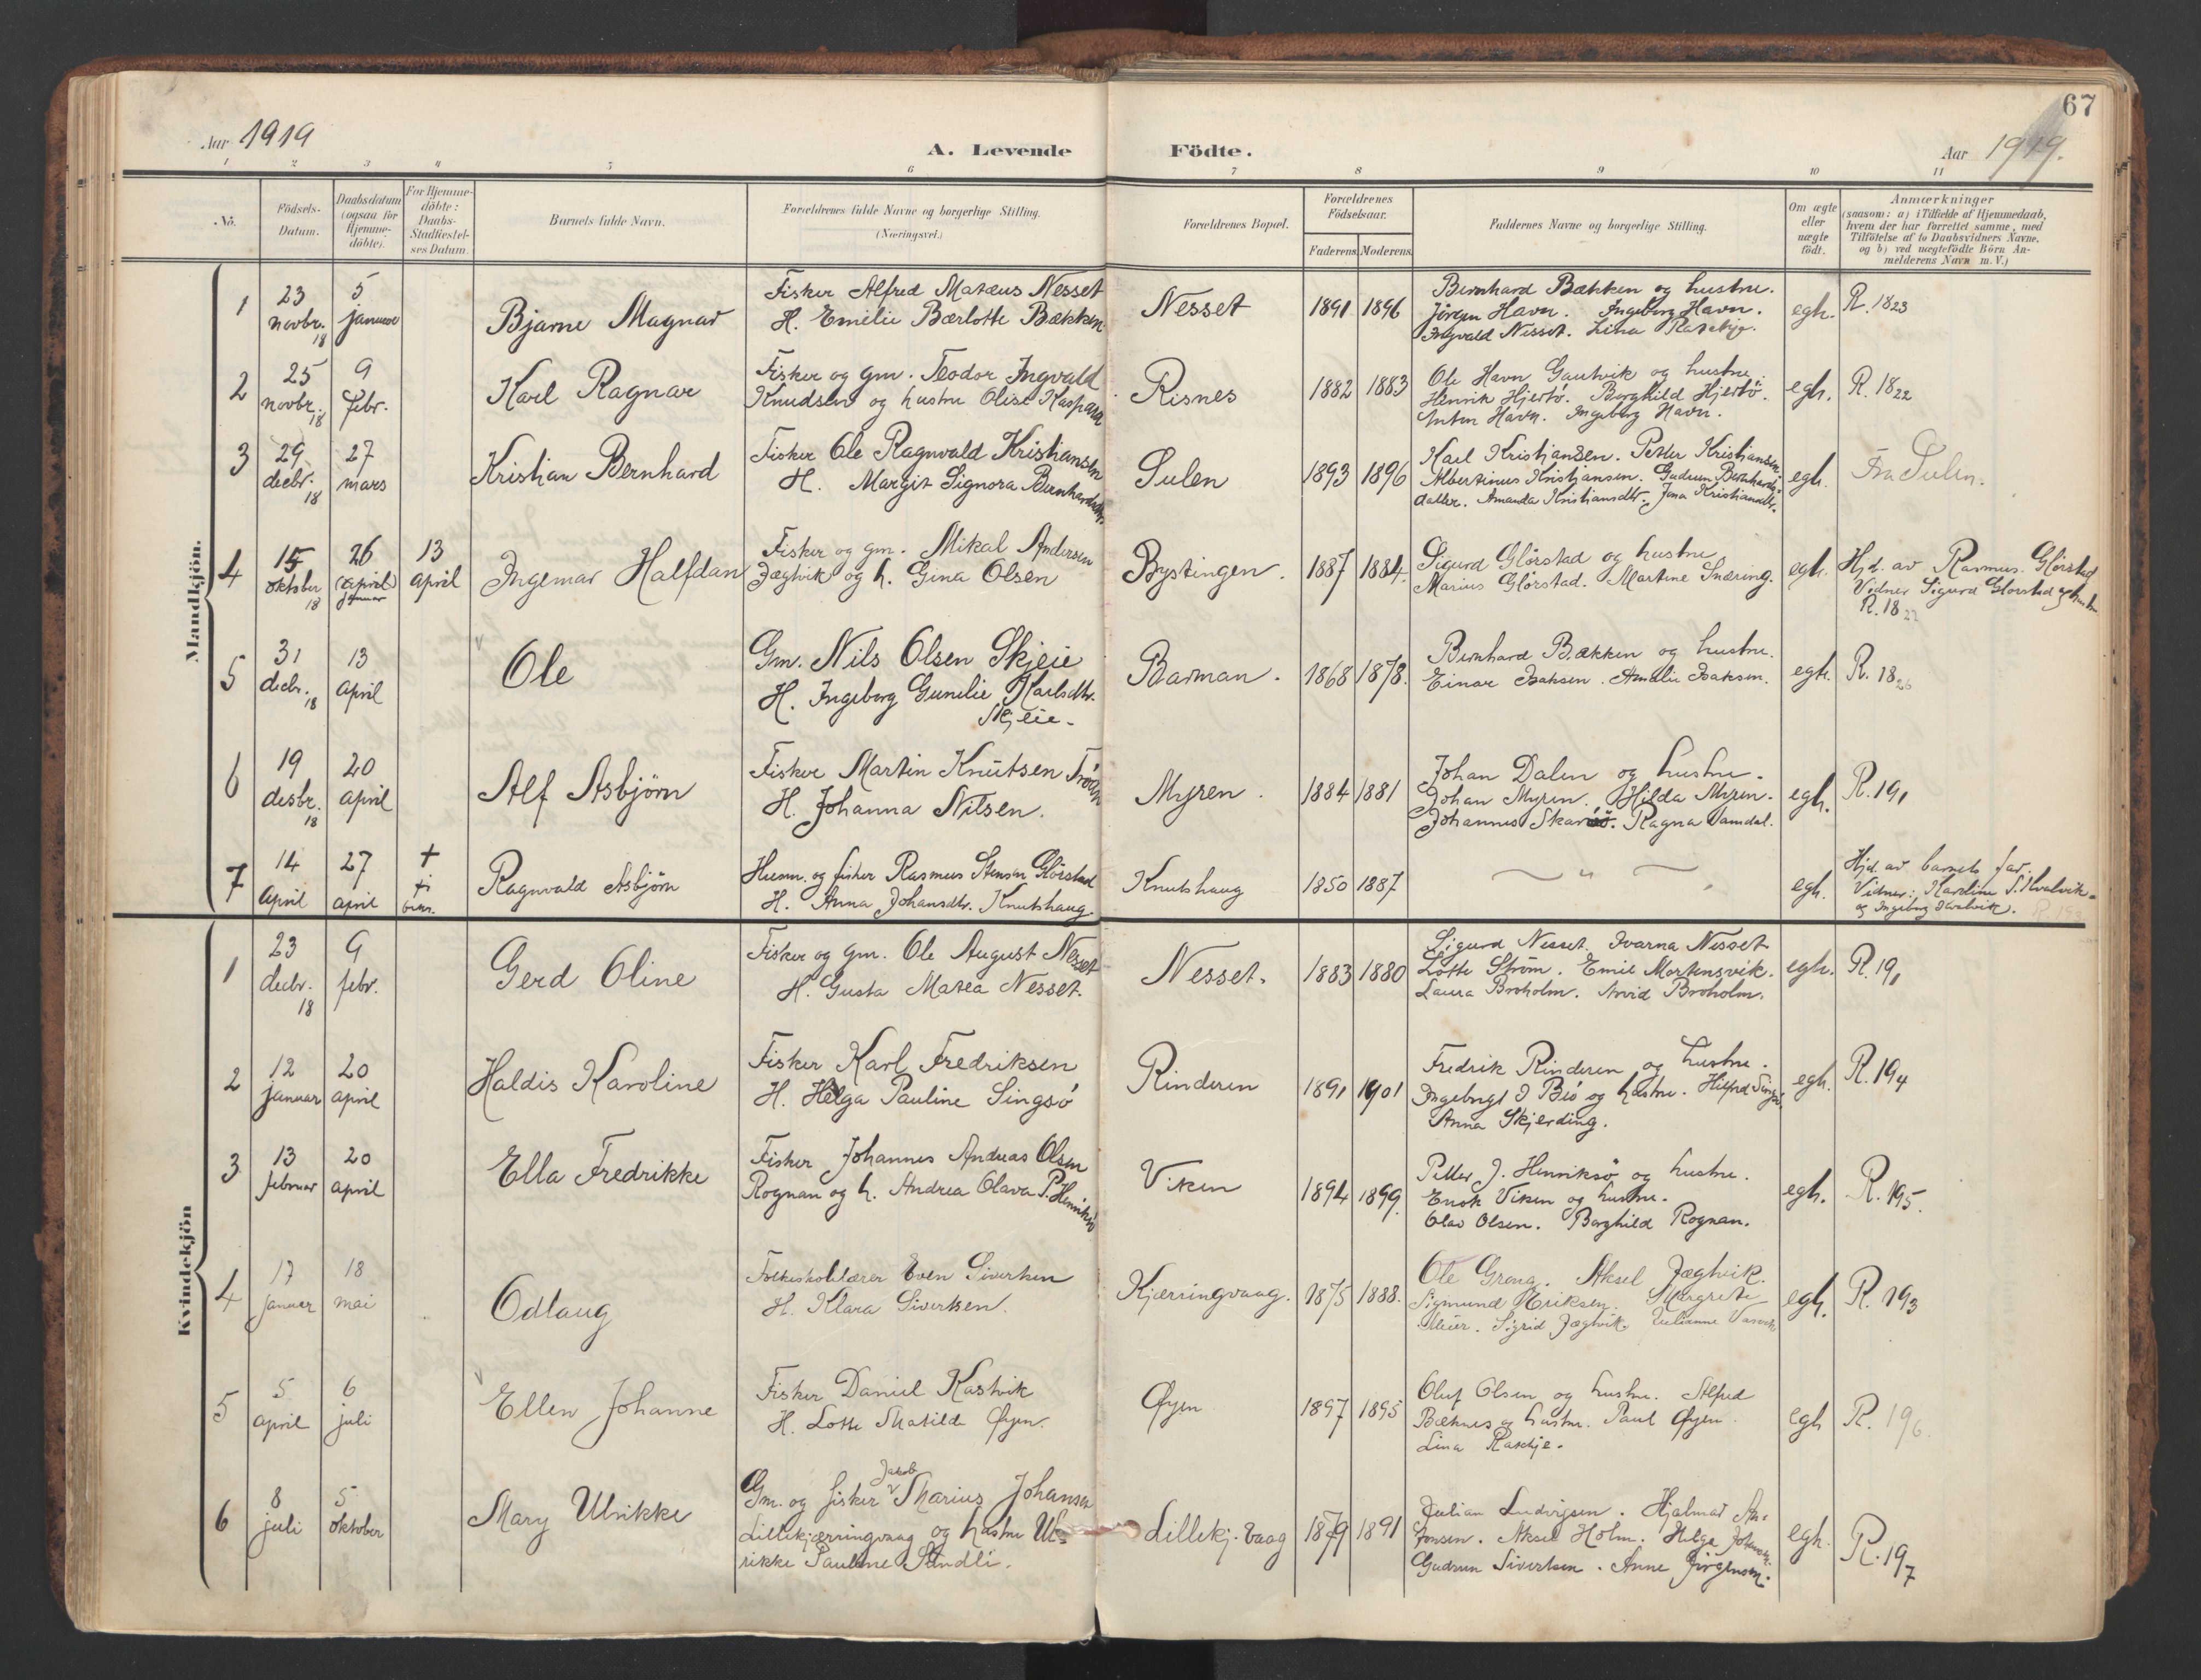 67
Aar 1919
A. Levende Födte.
Aar 1919.
1 2 3 4 5 6 7 8 9 10 11
No.
Födsels-Datum.
Daabsdatum (ogsaa for Hjemme-döbte).
For Hjemme-döbte: Daabs-Stadfæstel-ses Datum.
Barnets fulde Navn.
Forældrenes fulde Navne og borgerlige Stilling. (Næringsvei.)
Forældrenes Bopæl.
Forældrenes Födselsaar.
Faderens Moderens
Faddernes Navne og borgerlige Stilling.
Om ægte eller uægte födt.
Anmærkninger
(saasom: a) i Tilfælde af Hjemmedaab,
hvem der har forrettet samme, med
Tilföielse af to Daabsvidners Navne,
og b) ved uægtefödte Börn An-
melderens Navn m. V.)
Mandkjön.
1
23 novbr. 18
5 januar
Bjarne Magnar
Fisker Alfred Mateus Nesset
H. Emelie Bærlotte Bækken
Nesset
1891 1896
Bernhard Bækken og hustru.
Jörgen Havn. Ingeborg Havn.
Ingvald Nesset. Lina
egh.
R. 1823
2
25 novbr. 18
9 febr.
Karl Ragnar
Fisker og gm. Teodor Ingvald
Knudsen og hustru Olise Kaspara
Risnes
1882 1883
Ole Havn Gautvik og hustru.
Henrik Hjertö. Borghild Hjertö.
Anton Havn. Ingeborg Havn.
egh.
R. 1822
3
29 decbr. 18
27 mars
Kristian Bernhard
Fisker Ole Ragnvald Kristiansen
H. Margit Signora Bernhardsdtr.
Sulen
1893 1896
Karl Kristiansen. Petter Kristiansen.
Albertinus Kristiansen. Gudrun Bernhards-
datter. Amanda Kristiansdtr. Jena Kristiansdtr.
egh.
Fra Sulen.
4
15 oktober 18
26 (april) januar
13 april
Ingemar Halfdan
Fisker og gm. Mikal Andersen
Jægtvik og h. Gina Olsen
Bystingen.
1887 1884.
Sigurd Glörstad og hustru
Marius Glörstad. Martine Snæring.
egh.
Hjd. av Rasmus Glörstad
Vidner Sigurd Glörstad og hustru
R. 18
5
31 decbr. 18
13 april
Ole
Gm. Nils Olsen Skjeie
H. Ingeborg Gunelie Karlsdtr.
Skjeie.
Barman.
1868 1878.
Bernhard Bækken og hustru.
Einar Isaksen. Amalie Isaksen.
egh.
R. 1826
6
19 desbr. 18
20 april
Alf Asbjörn
Fisker Martin Knutsen Tröan
H. Johanna Nilsen.
Myren.
1884 1881
Johan Dalen og hustru.
Johan Myren. Hilda Myren.
Johannes Skarsö. Ragna Vamdal.
egh.
R. 191
7
14 april
27 april
Ragnvald Asbjörn
Husm. og fisker Rasmus Stensen Glörstad
H. Anna Johansdtr. Knutshaug.
Knutshaug
1850 1887
— " —
egh.
Hjd. av barnets far.
Vidner: Karoline S. Kvalvik
og Ingeborg Kvalvik.
Kvindekjön
1
23 decbr. 18
9 febr.
Gerd Oline
Fisker og gm. Ole August Nesset
H. Gusta Matea Nesset.
Nesset.
1883 1880
Sigurd Nesset. Ivarna Nesset
Lotte Ström. Emil Mortensvik.
Laura Broholm. Arvid Broholm.
egh.
R. 191
2
12 januar
20 april
Haldis Karoline
Fisker Karl Fredriksen
H. Helga Pauline Singsö
Rinderen
1891 1901
Fredrik Rinderen og hustru.
Ingebrigt J Bö og hustru. Hilfred Singsö.
Anna Skjerding.
egh.
R. 194
3
13 februar
20 april
Ella Fredrikke
Fisker Johannes Andreas Olsen
Rognan og h. Andrea Olava P. Henriksö
Viken
1894 1899.
Petter J. Henriksö og hustru.
Enok Viken og hustru.
Olav Olsen. Borghild Rognan.
egh.
R. 195.
4
17 januar
18 mai
Odlaug
Folkeskolelærer Even Sivertsen
H. Klara Sivertsen.
Kjærringvaag.
1875 1888.
Ole Grong. Aksel Jægtvik.
Sigmund Eriksen. Margrete
Meier. Sigrid Jægtvik. Julianne
egh.
R. 193
5
5 april
6 juli
Ellen Johanne
Fisker Daniel Kastvik
H. Lotte Matilde Øyen.
Øyen
1897 1895
Oluf Olsen og hustru. Alfred
Bæknes og hustru. Paul Øyen.
Lina
egh
R. 196.
6
8 juli
5 oktober
Mary Ulrikke
Gm. og fisker Jakob Marius Johansen
Lillekjærringvaag og hustru Ul-
rikke Pauline Sandli.
Lillekj. vaag
1879 1891
Julian Ludvigsen. Hjalmar An-
tonsen. Aksel Holm. Helga Johansen.
Gudrun Sivertsen. Anne Jörgensen.
egh.
R. 197